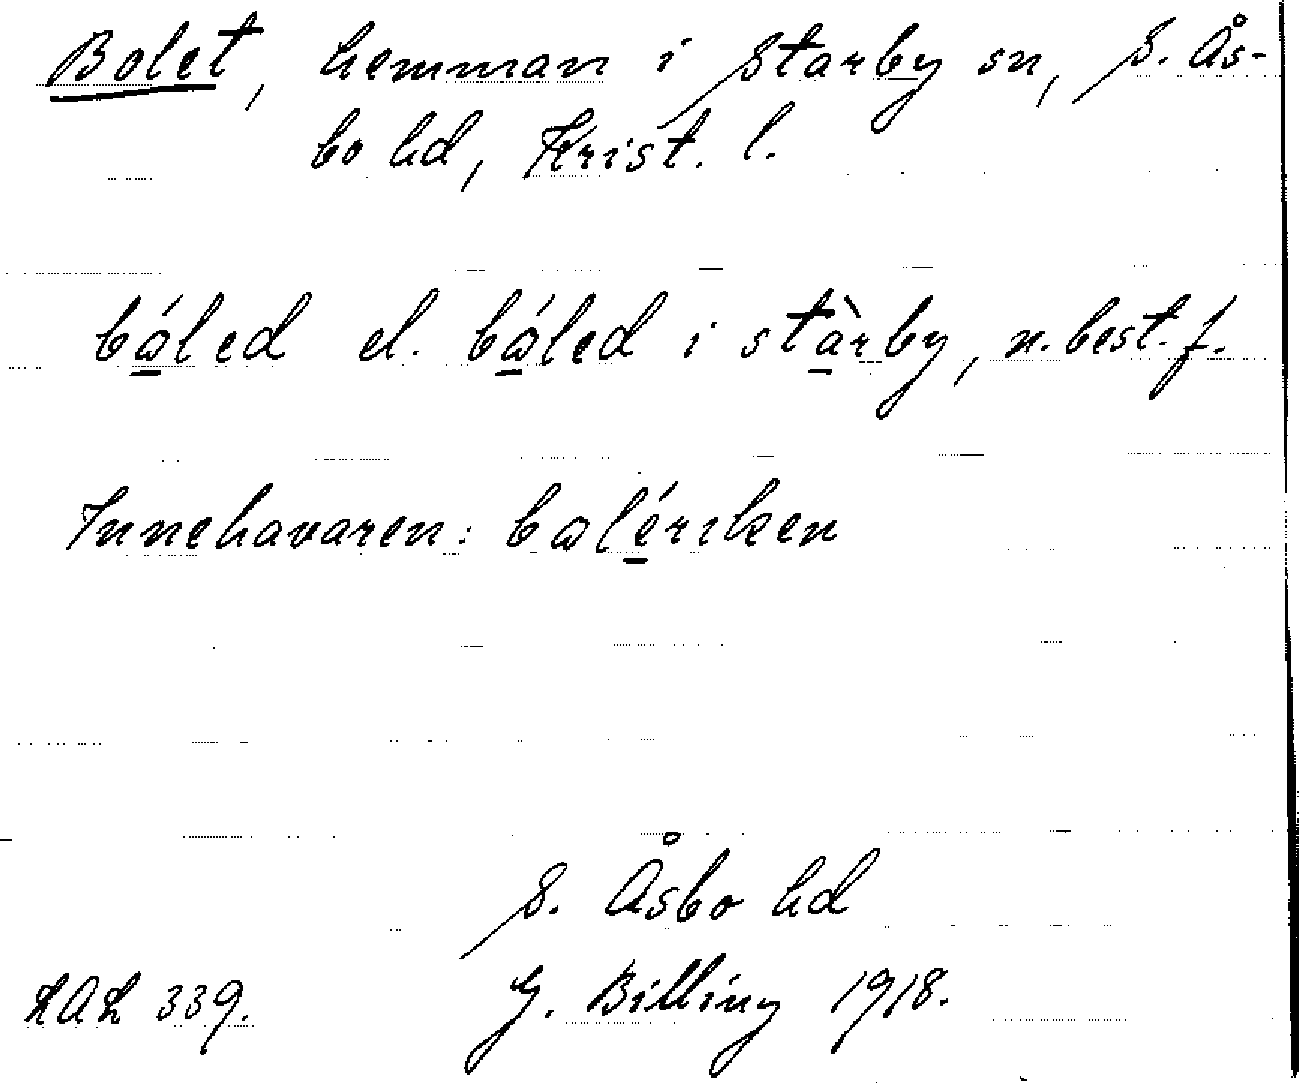 Bolet, hemman i Starby sn, S. Ås-
bo hd, Krist. l.
bώled el. bώled i stàrby, n. best. f.
Innehavaren: bωlériken
S. Åsbo hd
LAL 339.
G. Billing 1918.